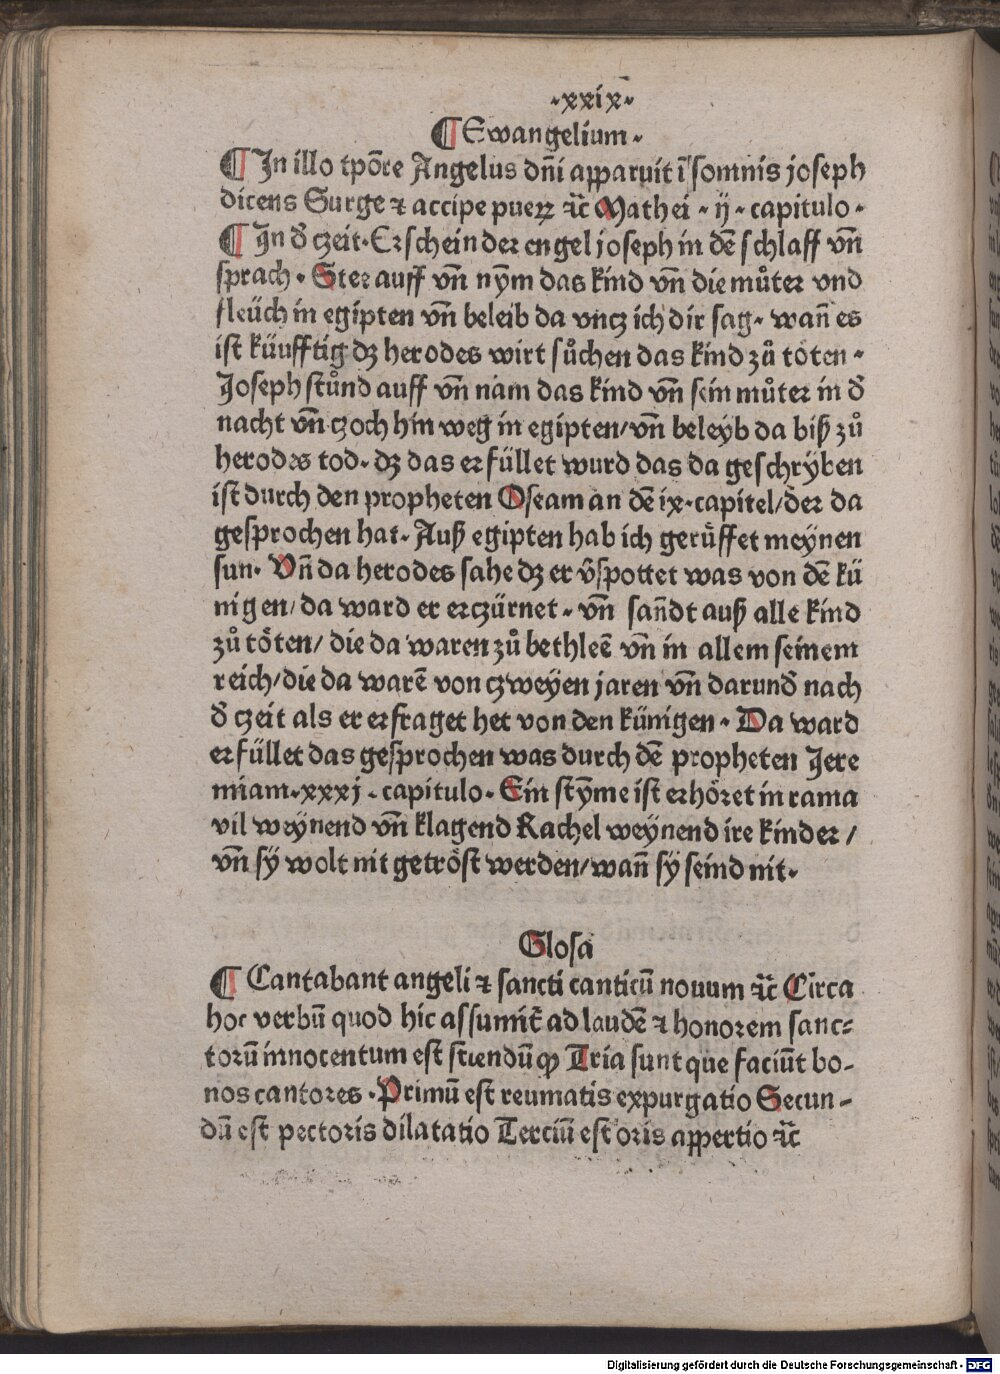 ·xxix·
¶ Ewangelium·
¶ In illo tpo᷑re Angelus dn̄i apparuit ī somnis joseph
dicens Surge ⁊ accipe pueꝝ ⁊c̄ Mathei · ij · capitulo ·
¶ In d᷑ czeit · Erschein der engel joseph in dē schlaff vn̄
sprach · Ster auff vn̄ nȳm das kind vn̄ die můter vnd
fleüch in egipten vn̄ beleib da vncz ich dir sag · wan̄ es
ist küufftig dz herodes wirt sůchen das kind zů töten ·
Joseph stůnd auff vn̄ nam das kind vn̄ sein můter in d᷑
nacht vn̄ czoch hin weg in egipten/ vn̄ beleyb da biß zů
herodes tod · dz das erfüllet wurd das da geschryben
ist durch den propheten Oseam an dē ix · capitel/ der da
gesprochen hat · Auß egipten hab ich gerüffet meynen
sun · Vn̄ da herodes sahe dz er v᷑spottet was von dē kü
nigen/ da ward er erczürnet · vn̄ san̄dt auß alle kind
zů töten/ die da waren zů bethleē vn̄ in allem seinem
reich/ die da warē von czweyen jaren vn̄ darund᷑ nach
d᷑ czeit als er erfraget het von den künigen · Da ward
erfüllet das gesprochen was durch dē propheten Jere
miam · xxxj · capitulo · Ein stȳme ist erhöret in rama
vil weynend vn̄ klagend Rachel weynend ire kinder /
vn̄ sÿ wolt nit getröst werden/ wan̄ sÿ seind nit ·
Glosa
¶ Cantabant angeli ⁊ sancti canticū nouum ⁊c̄ Circa
hoc verbū quod hic assumit᷑ ad laudē ⁊ honorem sanc⸗
torū innocentum est sciendū ꝙ Tria sunt que faciūt bo-
nos cantores · Primū est reumatis expurgatio Secun-
dū est pectoris dilatatio Terciū est oris appertio ⁊c̄
Digitalisierung gefördert durch die Deutsche Forschungsgemeinschaft - DFG